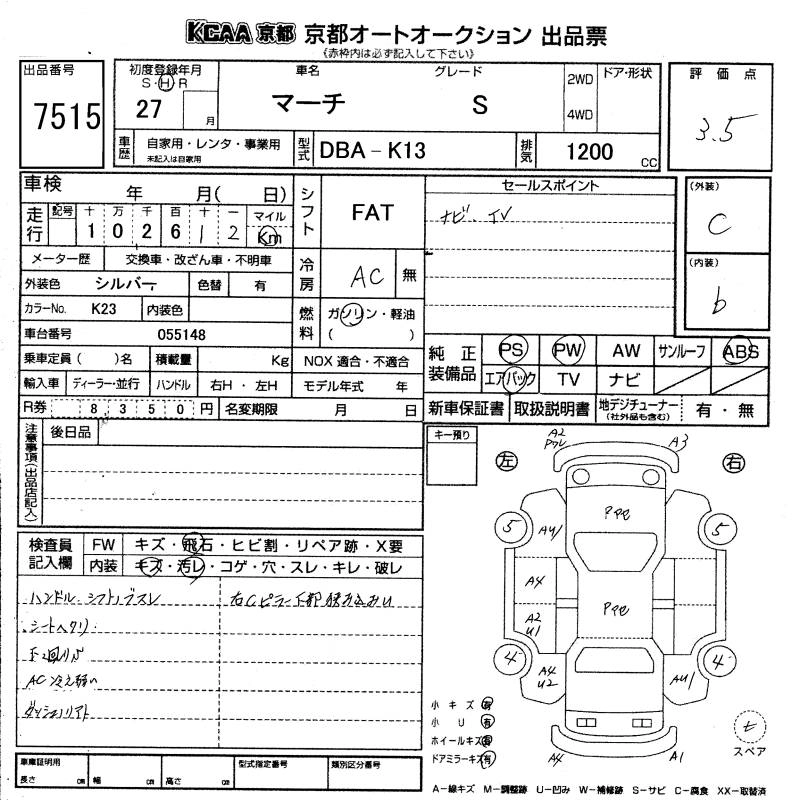 KCAA 京都 京都オートオークション 出品票
《赤枠内は必ず記入して下さい》
出品番号
7515
初度登録年月
S・H・R
27 月
車名 グレード
マーチ S
2WD
4WD
ドア・形状
評価点
3.5
車歴 自家用・レンタ・事業用
未記入は自家用
型式 DBA-K13
排気 1200 cc
車検 年 月( 日)
走行 記号 十 万 千 百 十 一 マイル
1 0 2 6 1 2 Km
シフト FAT
セールスポイント
ナビ. TV
(外装)
C
(内装)
b
メーター歴 交換車・改ざん車・不明車
冷房 AC 無
外装色 シルバー 色替 有
カラーNo. K23 内装色
燃料 ガソリン・軽油
( )
車台番号 055148
乗車定員( )名 積載量 Kg NOX 適合・不適合
輸入車 ディーラー・並行 ハンドル 右H・左H モデル年式 年
R券 8,350円 名変期限 月 日
純正装備品 PS PW AW サンルーフ ABS
エアバック TV ナビ
新車保証書 取扱説明書 地デジチューナー
(社外品も含む) 有・無
注意事項(出品店記入) 後日品
キー預り
左 右
A2
A3
5 5
A4
A2
U1
4 4
A4
U2
AU1
A4 A1
検査員記入欄 FW キズ・飛石・ヒビ割・リペア跡・X要
内装 キズ・汚レ・コゲ・穴・スレ・キレ・破レ
ハンドル. シフトノブスレ
シートヘタリ
AC冷え弱い
右Cピラー下部
小キズ 有
小U 有
ホイールキズ 有
ドアミラーキズ 有
スペア
車庫証明用
長さ cm 幅 cm 高さ cm
型式指定番号 類別区分番号
A-線キズ M-調整跡 U-凹み W-補修跡 S-サビ C-腐食 XX-取替済